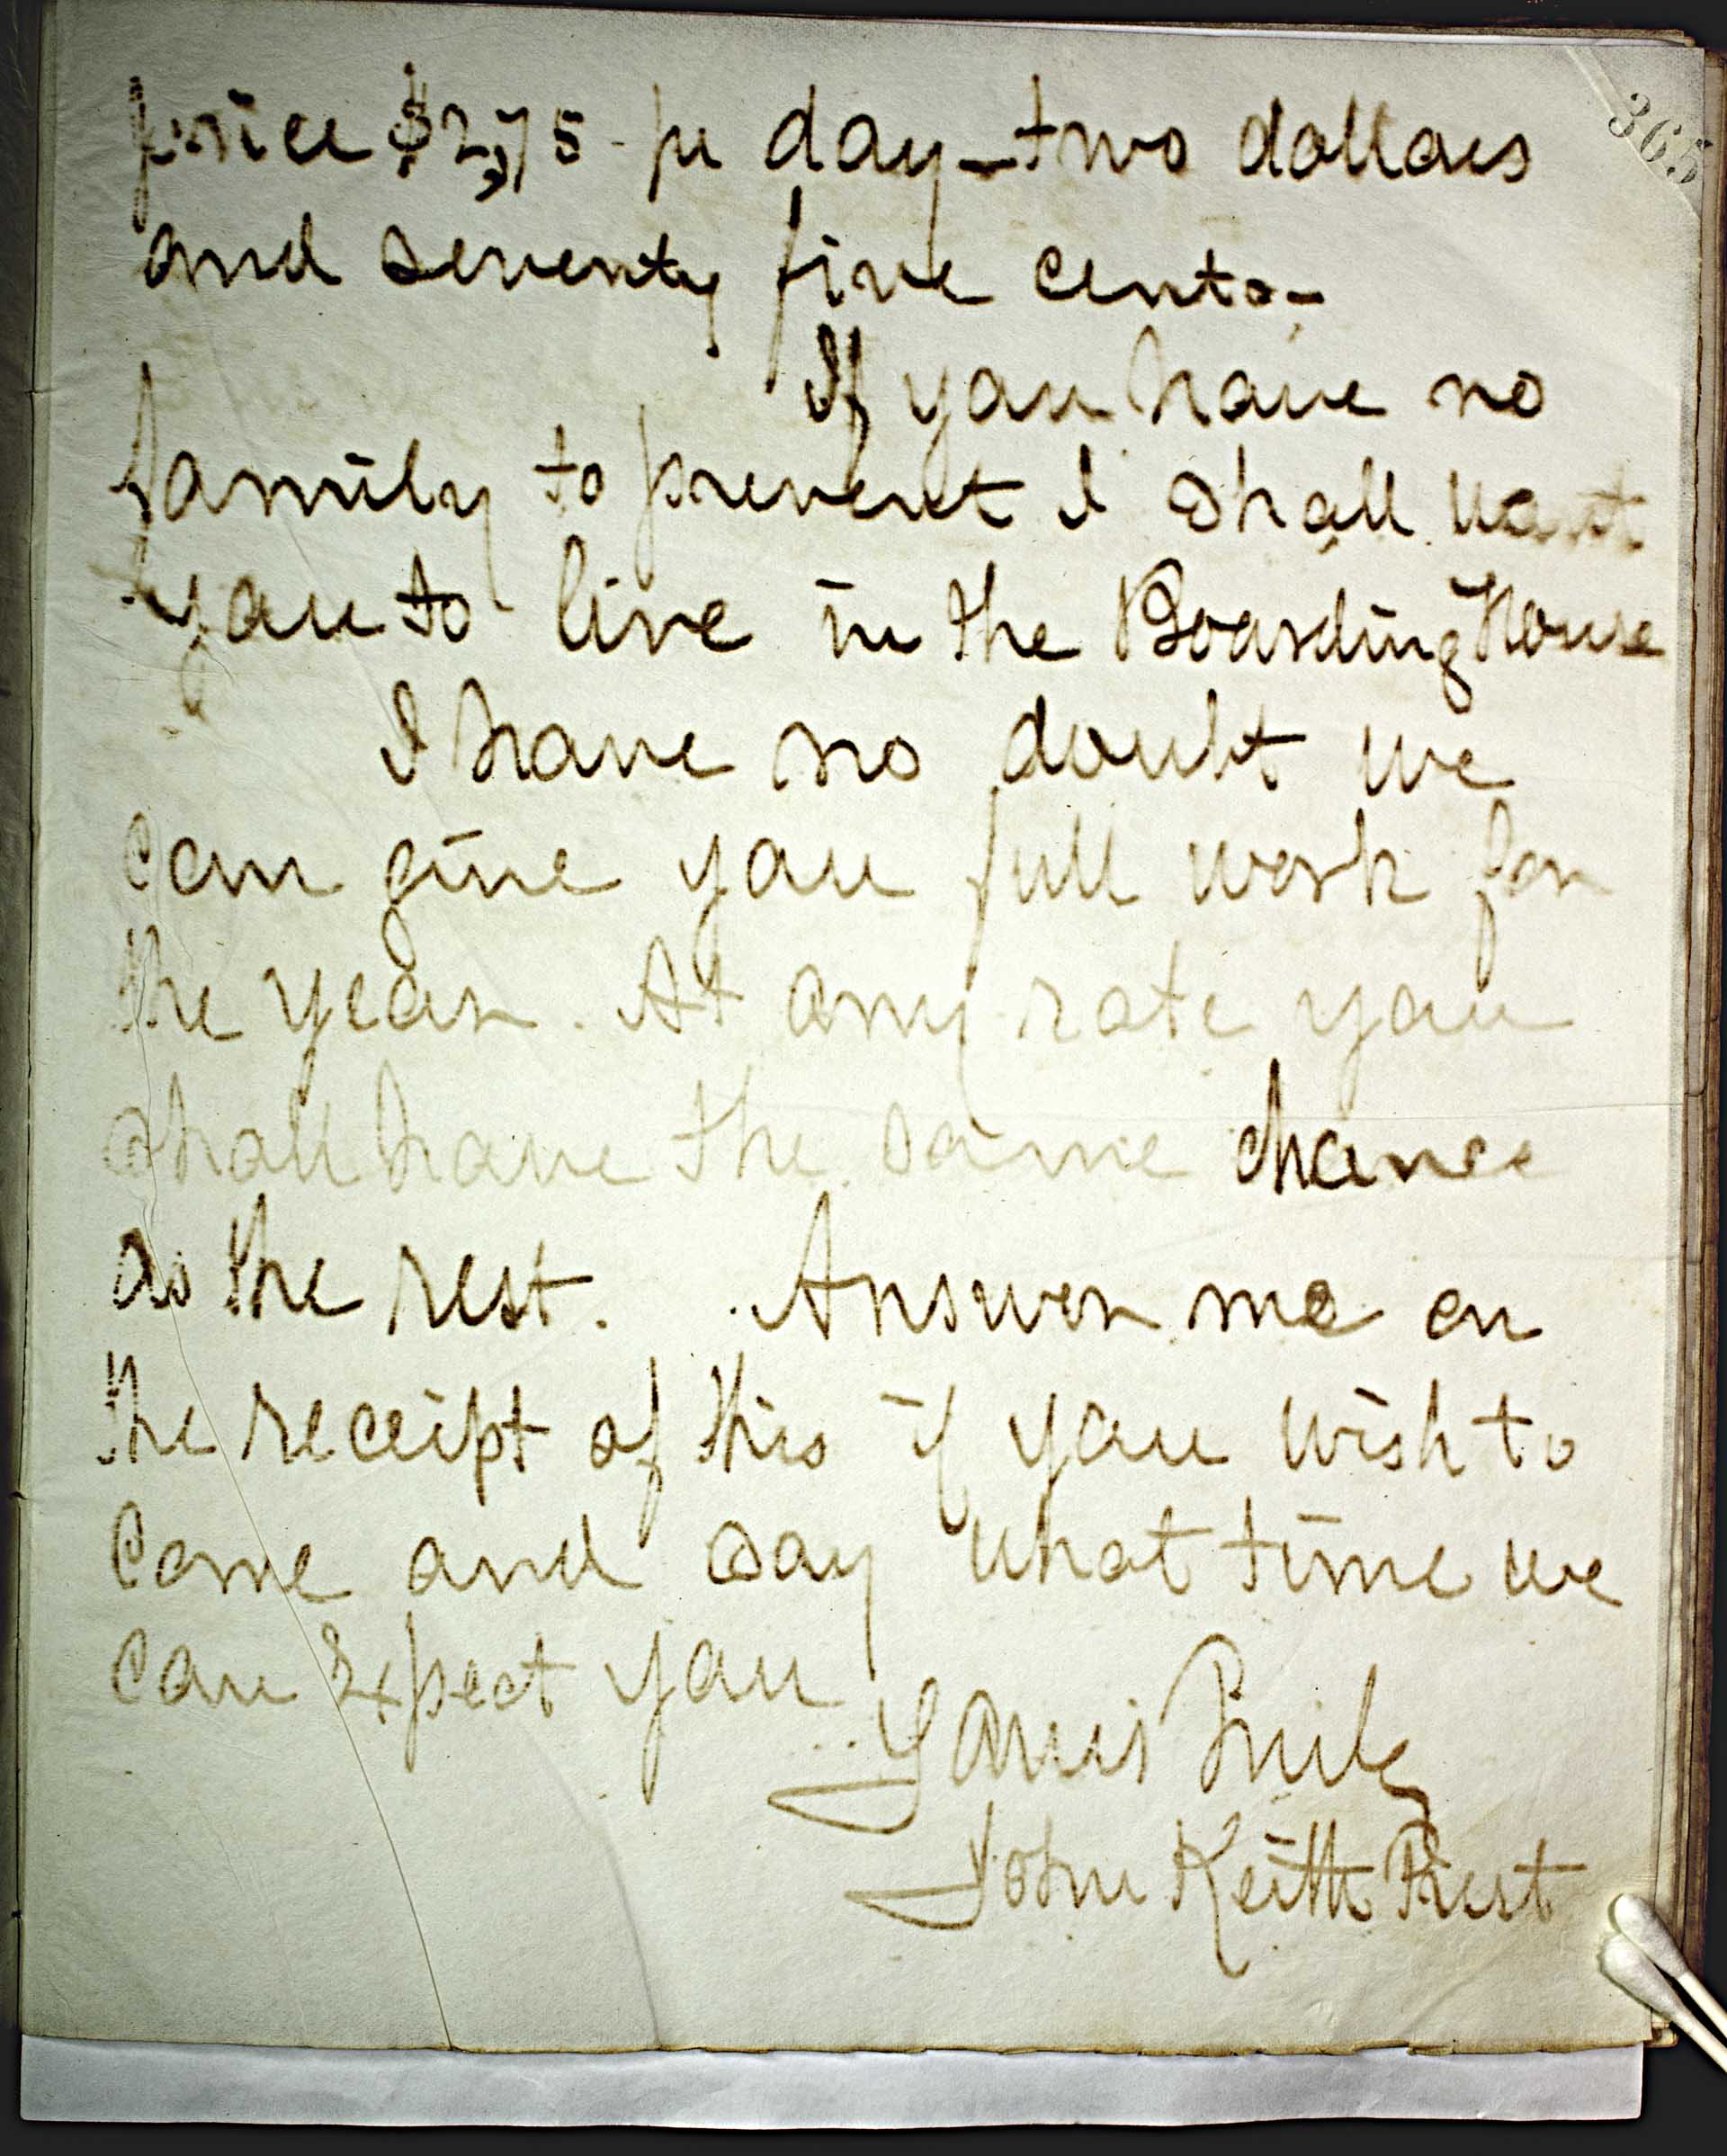 365
price $2,75 pr day – two dollars
and seventy five cents –
If you have no
family to prevent I shall want
you to live in the Boarding House
I have no doubt we
can give you full work for
the year. At any rate you
shall have the same chance
as the rest. Answer me on
the receipt of this if you wish to
Come and say what time we
can Expect you
Yours Truly
John Keith Prest